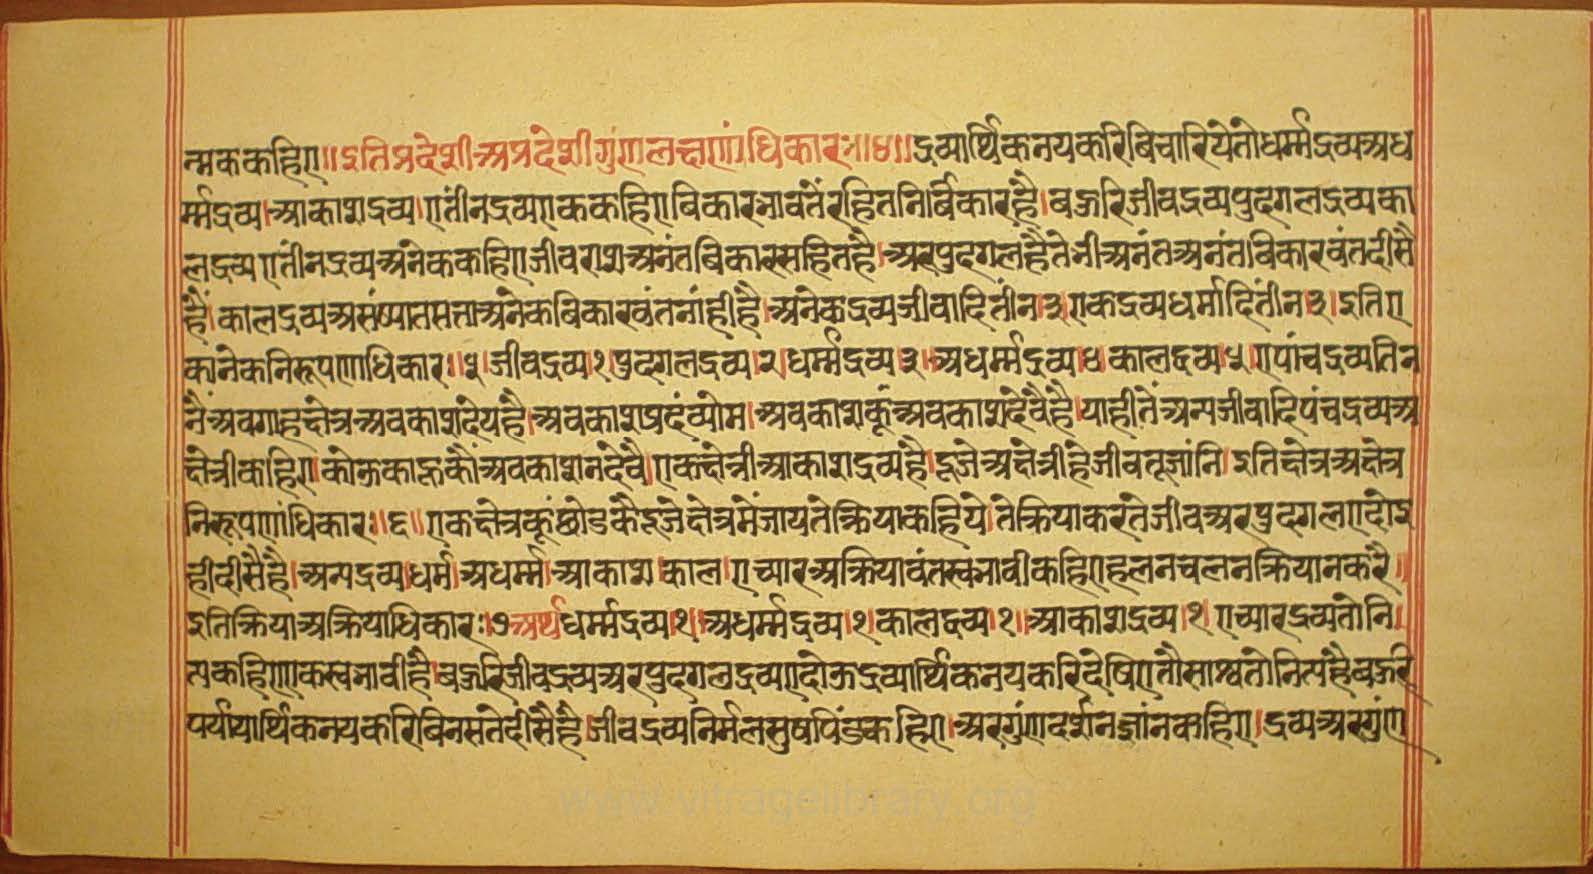 त्मककहिए॥इतिप्रदेशीअप्रदेशीगुंणलक्षणांधिकारः॥४॥द्रव्यार्थिकनयकरिबिचारियेतोधर्म्मद्रव्यअध
र्म्मद्रव्य।आकाशद्रव्य।एतीनद्रव्यएककहिएविकारभावतेंरहितनिर्बिकारहै।बऊरिजीवद्रव्यपुदगलद्रव्यका
लद्रव्यएतीनद्रव्यअंनेककहिएजीवराशअनंतबिकारसहितहै।अरपुदगलहैतेभीअनंतअनंतबिकारवंतदीसै
हैं।कालद्रव्यअसंष्यातसत्ताअनेकबिकारवंतनांहीहै।अनेकद्रव्यजीवादितीन।३।एकद्रव्यधर्मादितीन।३।इतिए
कानेकनिरूपणाधिकार॥५।जीवद्रव्य।१।पुदगलद्रव्य।२।धर्म्मद्रव्य।३।अधर्म्मद्रव्य।४।कालद्रव्य।५।एपांचद्रव्यतिन
नैंअवगाहक्षेत्रअवकाशदेयहै।अवकाशप्रदंव्योम।अवकाशकूंअवकाशदेवैहै।याहीतेंअन्यजीवादिपंचद्रव्यअ
क्षेत्रीकहिए।कोऊकाहूकौंअवकाशनदेवै।एकक्षेत्रीआकाशद्रव्यहै।दूजेअक्षेत्रीहेजीवतूजांनि।इतिक्षेत्रअक्षेत्र
निरूपणांधिकारः॥६॥एकक्षेत्रकूंछोडकैदूजेक्षेत्रमेंजायतेक्रियाकहिये।तेक्रियाकरंतेजीवअरपुदगलएदोइ
हीदीसैहै।अन्यद्रव्य।धर्म।अधर्म्म।आकाश।काल।एच्यारअक्रियावंतस्वभावीकहिएहलनचलनक्रियानकरै॥
इतिक्रियाअक्रियाधिकार॥७अर्थधर्म्मद्रव्य।१।अधर्म्मद्रव्य।१।कालद्रव्य।१।आकाशद्रव्य।१।एच्यारद्रव्यतोनि।
त्यकहिएएकस्वभावीहै।बऊरिजीवद्रव्यअरपुदगलद्रव्यएदोऊद्रव्यार्थिकनयकरिदेषिएतौसाश्वतोनित्यहैबऊरि
पर्यायार्थिकनयकरिबिनसतेदीसैहै।जीवद्रव्यनिर्मलसुषपिंडकहिए।अरगुंणदर्शनज्ञांनकहिए।द्रव्यअरगुंण
www.vitragelibrary.org